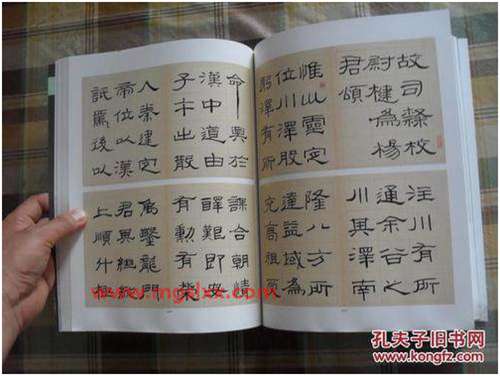 故司隸校
尉楗為楊
君頌
惟靈定
位川澤股
躬澤有所
注川有所
通余谷之
川其澤南
隆八方所
達益域為
充高祖受
命興於
漢中道由
子午出散
入秦建定
帝位以漢
詆焉後以
課合朝情
醳艱即安
有勳有榮
禹鑿龍門
君其繼縱
上順斗極
孔夫子旧书网
www.kongfz.com